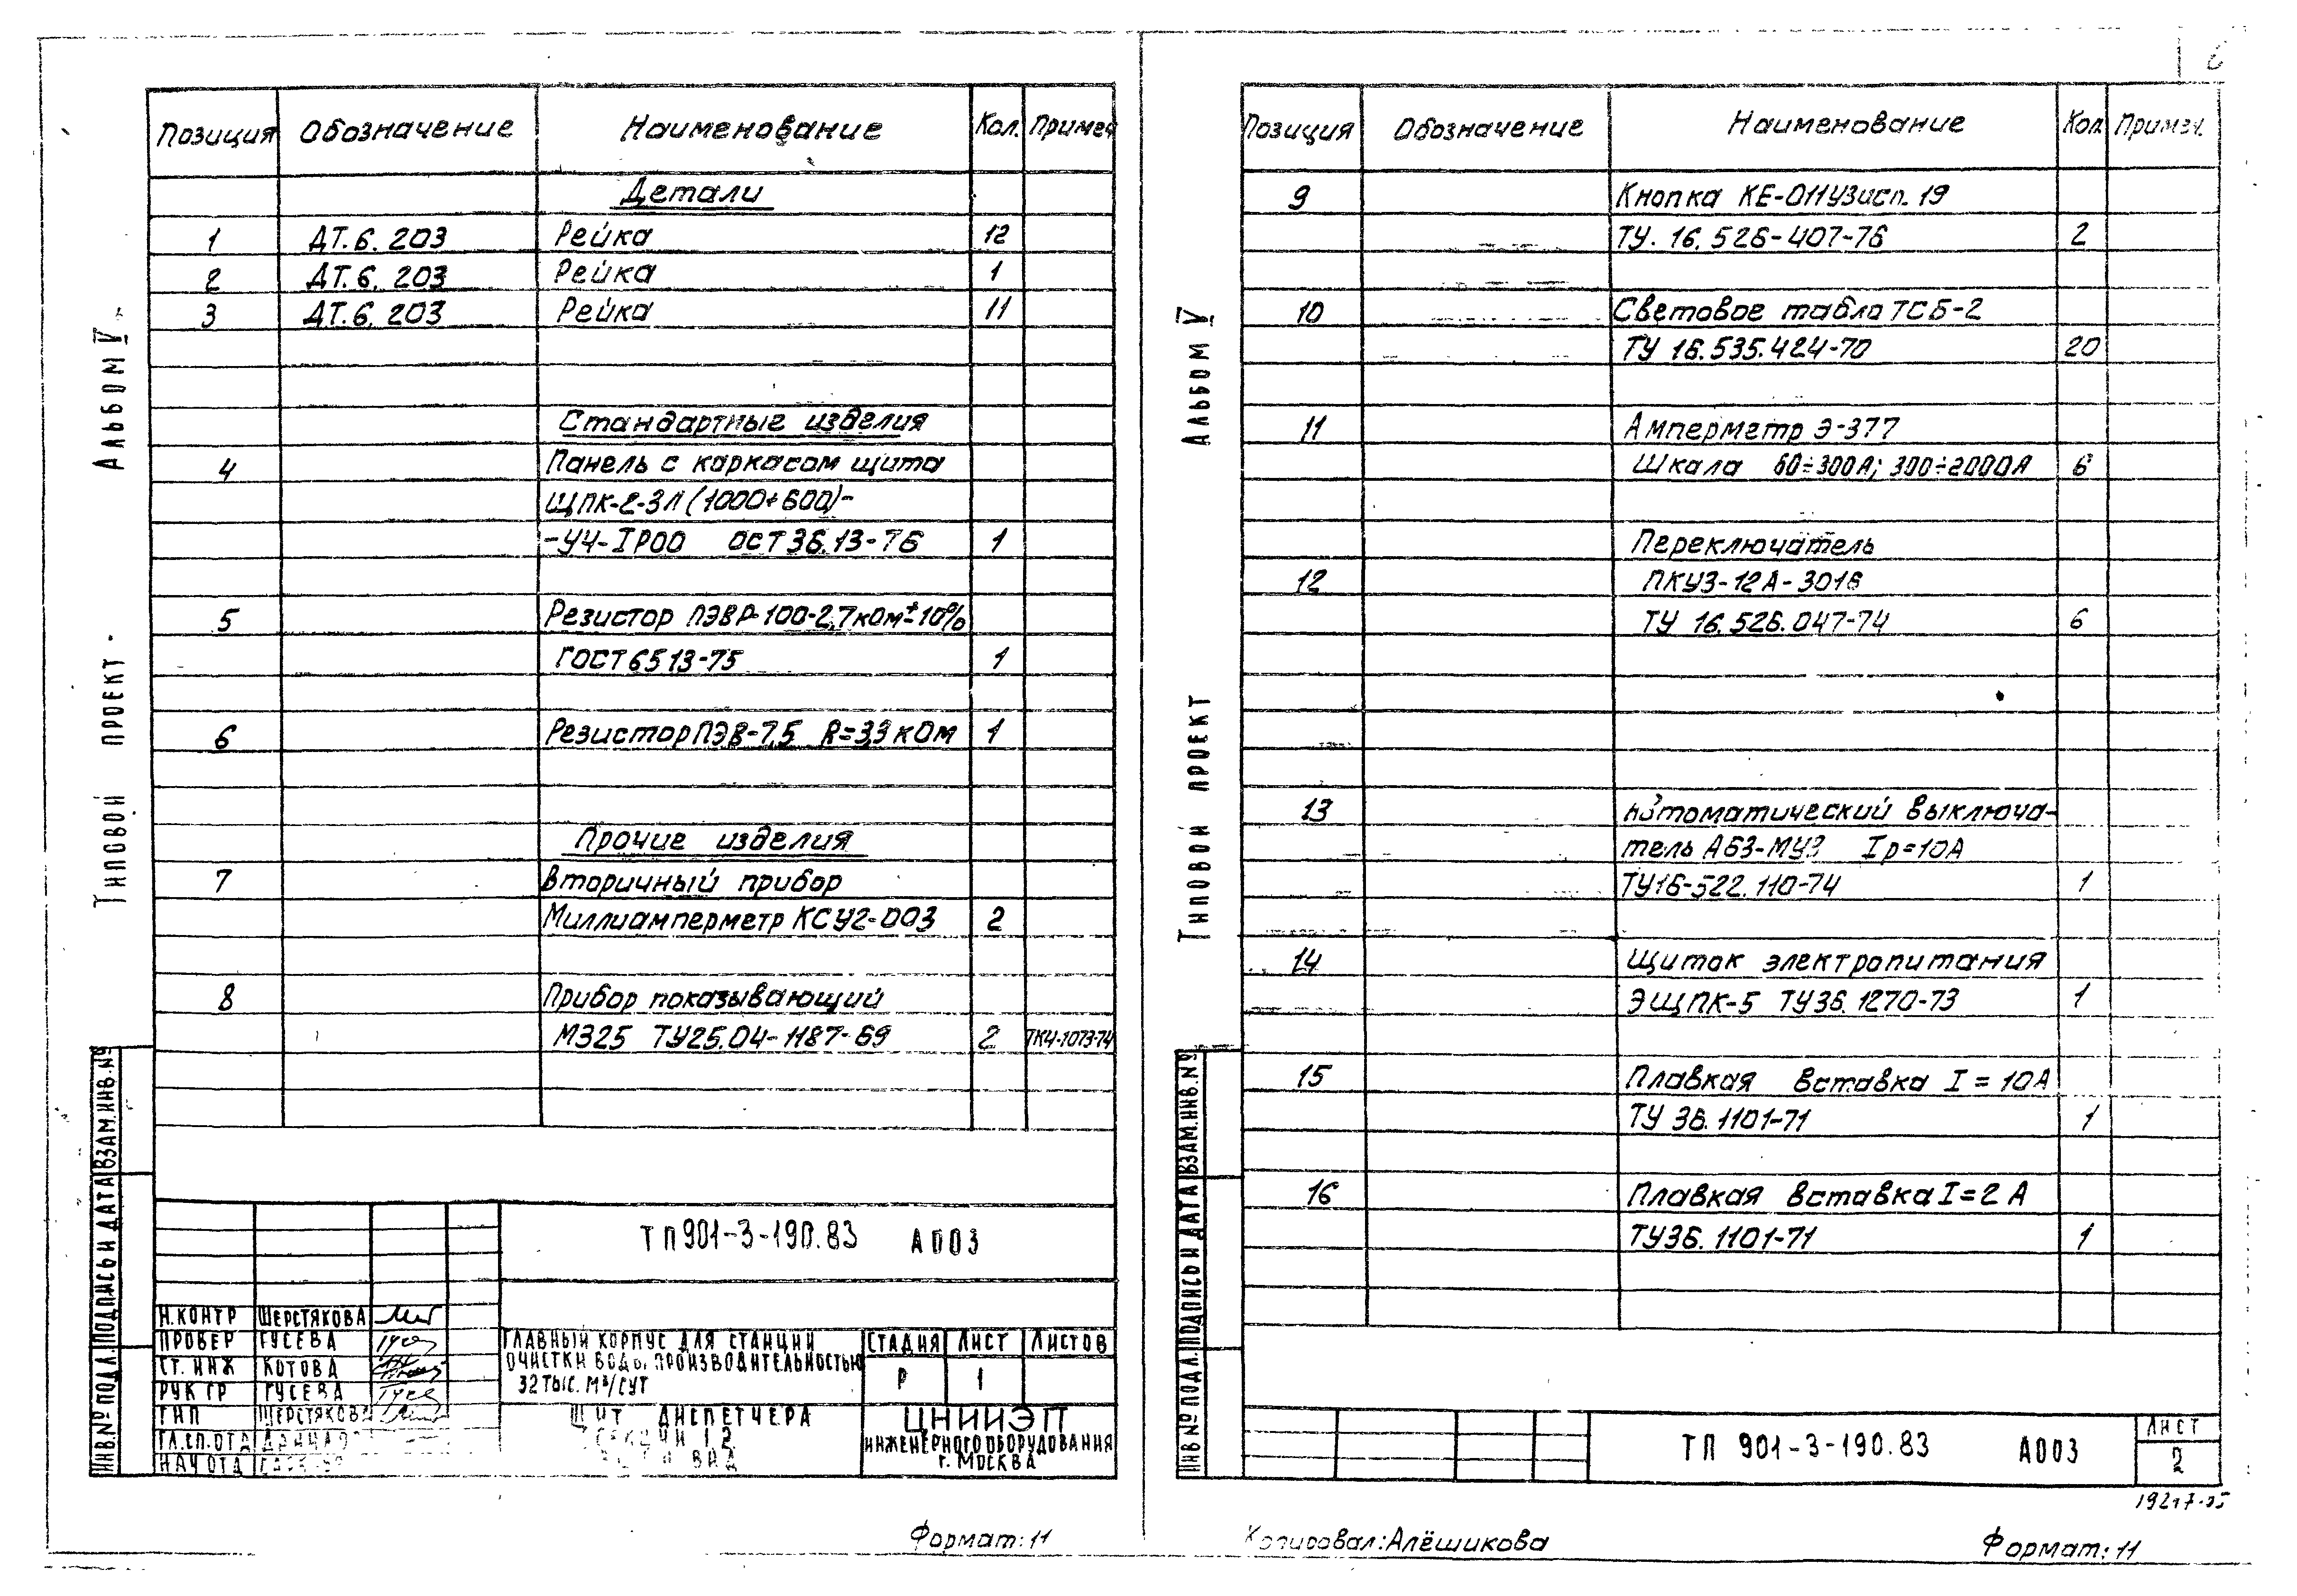 Позиция Обозначение Наименование Кол. Примеч
Детали
1 ДТ.6.203 Рейка 12
2 ДТ.6.203 Рейка 1
3 ДТ.6.203 Рейка 11
Стандартные изделия
4 Панель с каркасом щита
ЩПК-2-ЗЛ(1000+600)-
-УЧ-IP00 ОСТ36.13-76 1
5 Резистор ПЭВР-100-2,7кОм±10%
ГОСТ6513-75 1
6 Резистор ПЭВ-7,5 R=3,3кОм 1
Прочие изделия
7 Вторичный прибор
Миллиамперметр КСУ2-003 2
8 Прибор показывающий
М325 ТУ25.04-1187-69 2 ТКЧ-1073-74
Альбом V
Типовой проект
ВЗАМ.ИНВ.№
ПОДПИСЬ И ДАТА
ИНВ.№ ПОДЛ.
ТП901-3-190.83 А003
Н.КОНТР ШЕРСТЯКОВА
ПРОВЕР ГУСЕВА
СТ. ИНЖ КОТОВА
РУК ГР ГУСЕВА
ГИП ШЕРСТЯКОВА
ГЛ.СП.ОТД
НАЧ ОТД
ГЛАВНЫЙ КОРПУС ДЛЯ СТАНЦИИ
ОЧИСТКИ ВОДЫ ПРОИЗВОДИТЕЛЬНОСТЬЮ
32 ТЫС. М³/СУТ
СТАДИЯ ЛИСТ ЛИСТОВ
Р 1
ЩИТ ДИСПЕТЧЕРА
СЕКЦИИ 1,2
ВИД
ЦНИИЭП
ИНЖЕНЕРНОГО ОБОРУДОВАНИЯ
Г. МОСКВА
Формат:11
Позиция Обозначение Наименование Кол. Примеч.
9 Кнопка КЕ-011У3исп.19
ТУ.16.526-407-76 2
10 Световое табло ТСБ-2
ТУ 16.535.424-70 20
11 Амперметр Э-377
Шкала 60÷300А; 300÷2000А 6
Переключатель
12 ПКУ3-12А-3016
ТУ 16.526.047-74 6
13 Автоматический выключа-
тель А63-МУ3 Iр=10А
ТУ16-522.110-74 1
14 Щиток электропитания
ЭЩПК-5 ТУ36.1270-73 1
15 Плавкая вставка I=10А
ТУ 36.1101-71 1
16 Плавкая вставка I=2А
ТУ36.1101-71 1
Альбом V
Типовой проект
ВЗАМ.ИНВ.№
ПОДПИСЬ И ДАТА
ИНВ.№ ПОДЛ.
ТП 901-3-190.83 А003
ЛИСТ
2
Копировал:Алёшикова
Формат:11